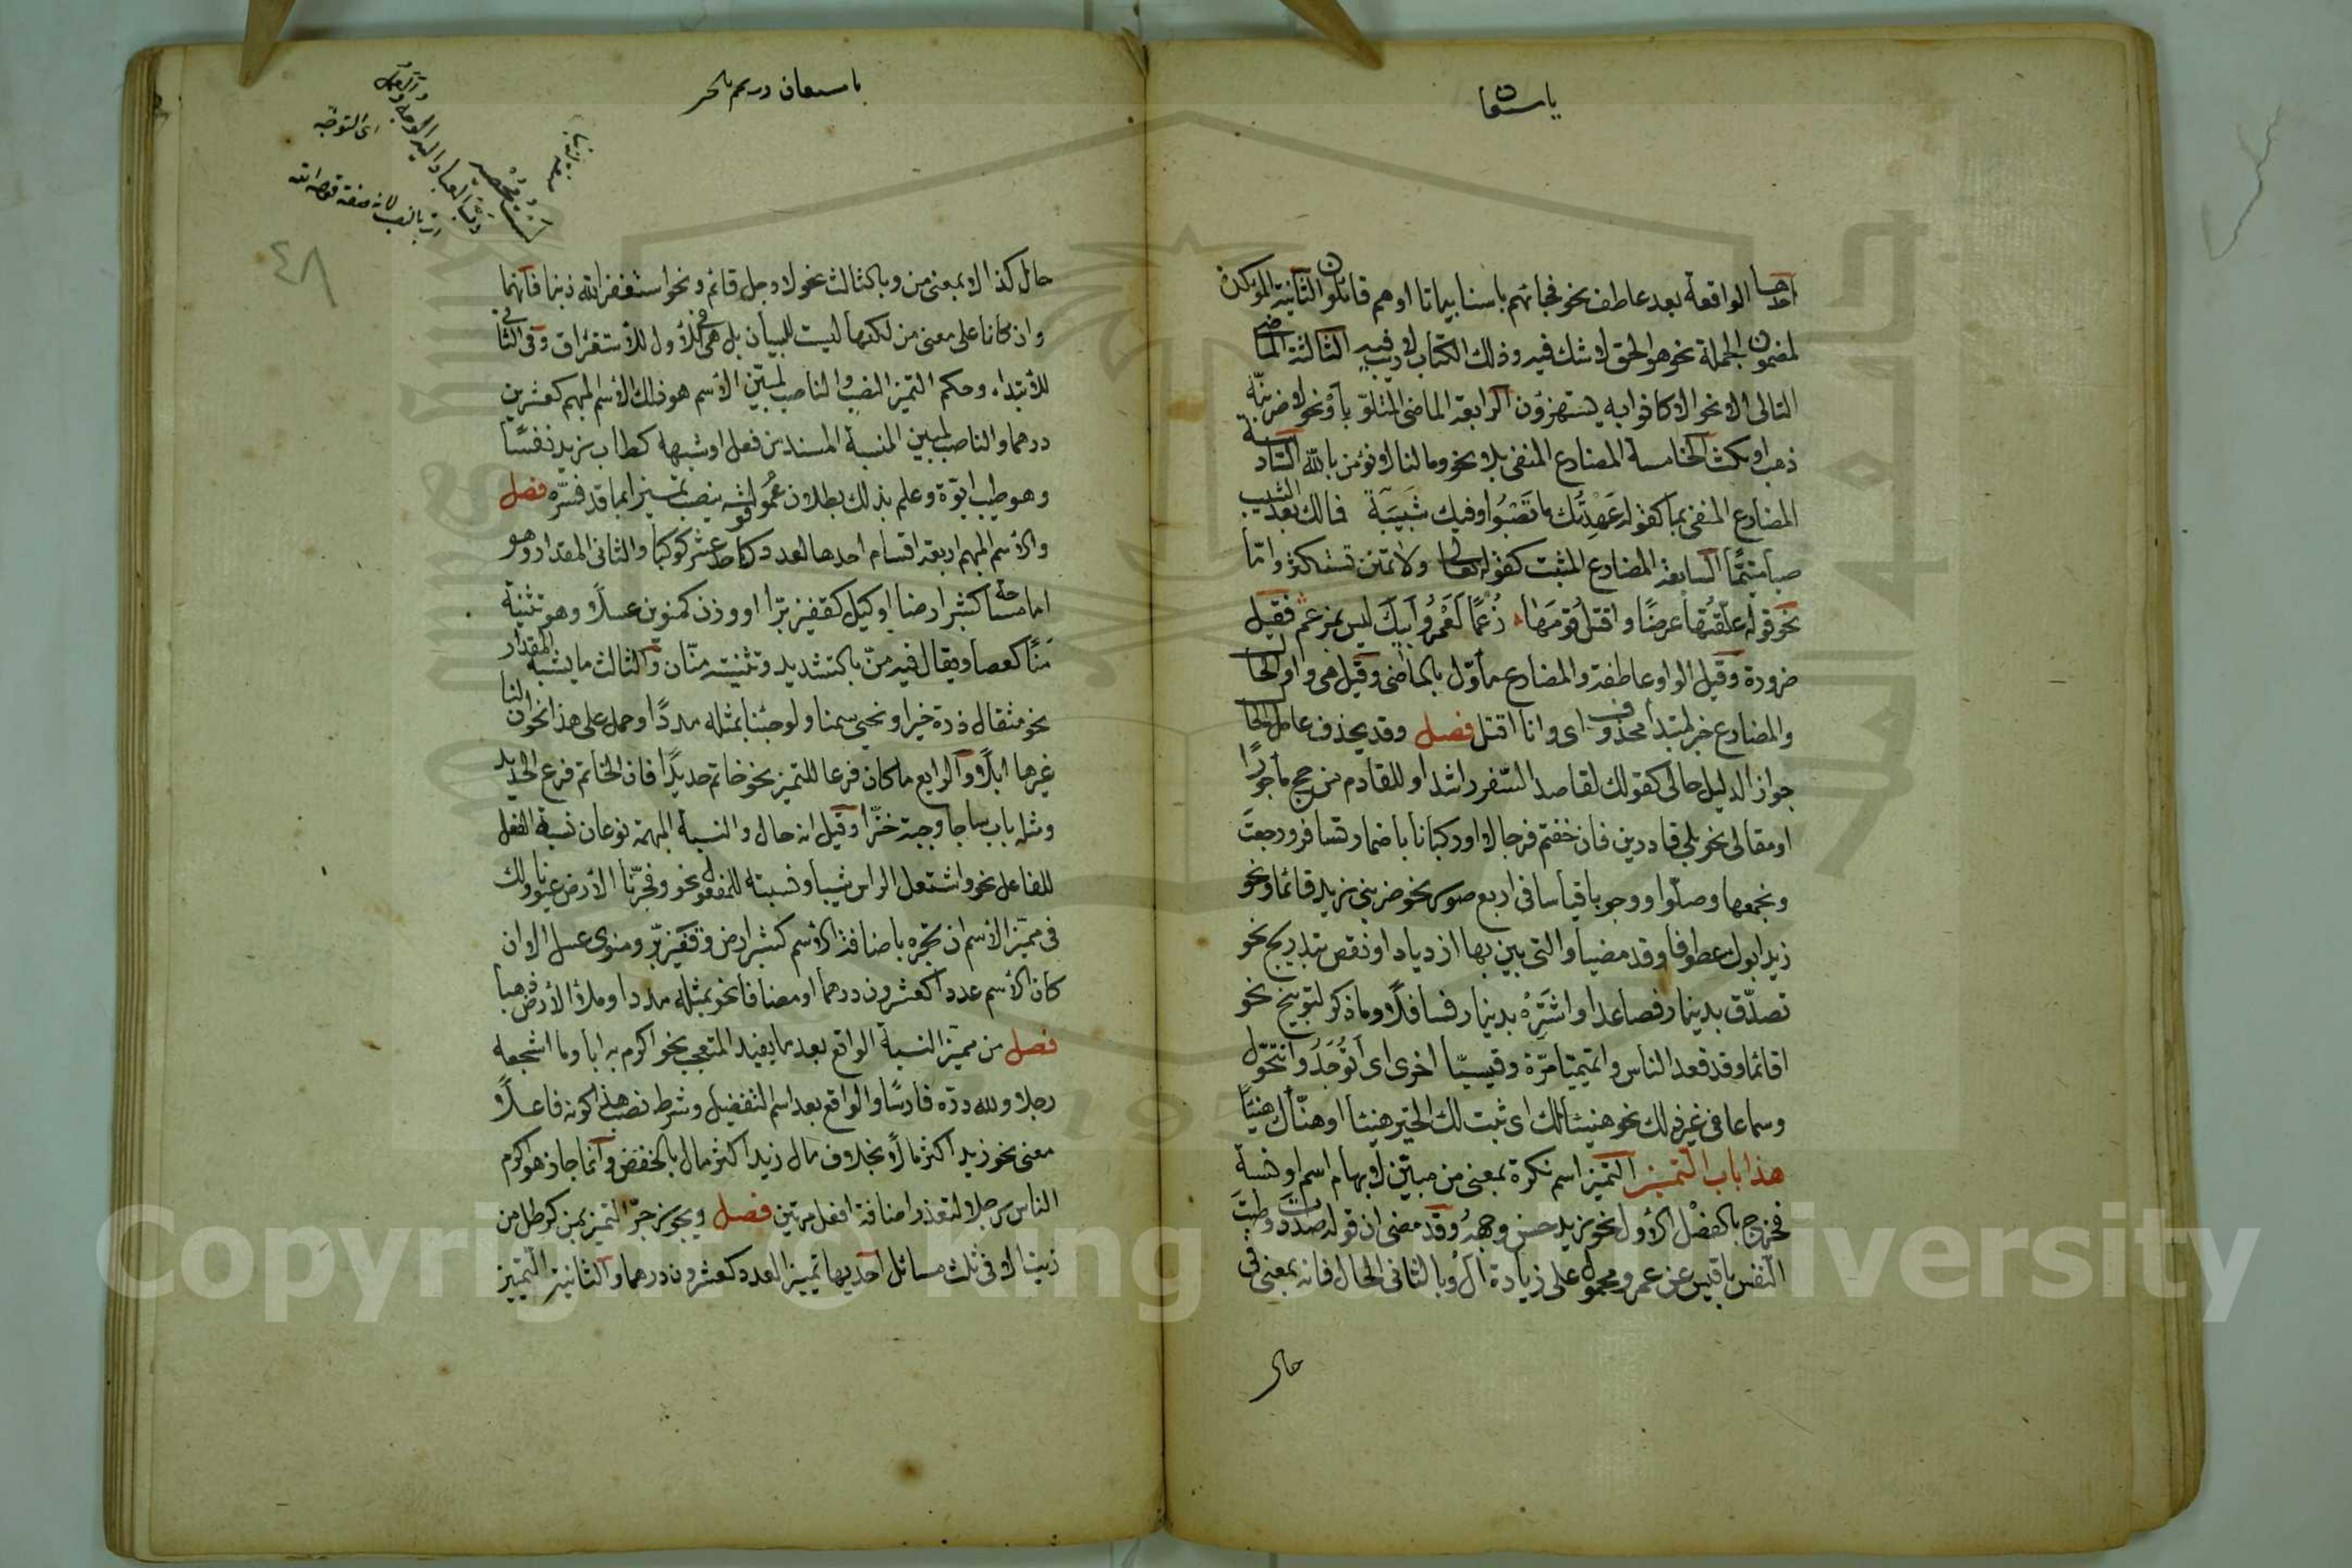 احدها الواقعة بعد عاطف نحو فجائهم باسنا بياتا او هم قائلون الثانية المؤكدة
لمضمون الجملة نحو هو الحق لا شك فيه وذلك الكتاب لا ريب فيه الثالثة الماضي
التالي الا نحو الا كانوا به يستهزؤن الرابعة الماضي المتلو بأو نحو لاضربنه
ذهب او مكث الخامسة المضارع المنفي بلا نحو وما لنا لا نؤمن بالله السادسة
المضارع المنفي بما كقوله عَهِدتُك ما تَصْبُوا وفيك شَبيبَة فمالك بعد الشيب
صبا متيمًا السابعة المضارع المثبت كقوله تعالى ولا تمنن تستكثر واما
نحو قوله علقتُها عرضًا واقتل قومَها زُعمًا لَعَمْرُو اَبيكَ ليس بمزعم فقيل
ضرورة وقيل الواو عاطفة والمضارع مأوّل بالماضي وقيل هي واو الحال
والمضارع خبر لمبتدأ محذوف اي وانا اقتل فصل وقد يحذف عامل الحال
جوازا لدليل حالي كقولك لقاصد السّفر راشدا وللقادم من حج مأجورًا
او مقالي نحو بلى قادرين فان خفتم فرجالا او ركبانا باضمار تسافر ورجعتَ
ونجمعها وصلّوا ووجوبا قياسا في اربع صور نحو ضربني زيد قائما ونحو
زيد ابوك عطوفا وقد مضيا والتي يبين بها ازدياد او نقص بتدريج نحو
تصدّق بدينار فصاعدا واشتَرِهْ بدينار فسافلًا وما ذكر لتوبيخ نحو
اقائما وقد قعد الناس واتميميّا مرّة وقيسيّا اخرى اي اتُوجَدُ واتتحوّل
وسماعا في غير ذلك نحو هنيئا لك اي ثبت لك الخير هنيئا او هنّأك هنيئًا
هذا باب التمييز التمييز اسم نكرة بمعنى من مبيّن لابهام اسم او نسبة
فخرج بالفصل الاول نحو زيد حسن وجههُ وقد مضى ان قوله صددت وطبتَ
النّفس يا قيس عن عمرو محمول على زيادة ال وبالثاني الحال فانه بمعنى في
حال
حال كذا لا بمعنى من وبالثالث نحو لا رجل قائم ونحو استغفر الله ذنبا فانهما
وان كانا على معنى من لكنها ليست للبيان بل هي في الأول للأستغراق وفي الثاني
للأبتداء وحكم التميز النصب والناصب لمبيّن الأسم هو ذلك الأسم المبهم كعشرين
درهما والناصب لمبين النسبة المسند من فعل او شبهه كطاب زيد نفسًا
وهو طيب ابوّة وعلم بذلك بطلان عمُوم قوله ينصب تمييزا بما قد فسّره فصل
والأسم المبهم اربعة اقسام احدها العدد كاحد عشر كوكبا والثاني المقدار وهو
اما مساحة كشبر ارضا او كيل كقفيز برّا او وزن كمنوين عسلًا وهو تثنية
مَنًا كعصا ويقال فيه منّ بالتشديد وتثنيته منّان والثالث ما يشبه المقدار
نحو مثقال ذرة خيرا ونحيى سمنا ولو جئنا بمثله مددًا وحمل على هذا نحو ان لنا
غيرها ابلًا والرابع ما كان فرعا للتميز نحو خاتم حديدًا فان الخاتم فرع الحديد
ومثله باب ساجا وجبة خزّا وقيل انه حال والنسبة المبهمة نوعان نسبة الفعل
للفاعل نحو واشتعل الراس شيبا ونسبته للمفعول نحو وفجّرنا الأرض عيونا ولك
في مميّز الأسم ان تجره باضافة الأسم كشبر ارض وقفيز برّ ومنوى عسل الا ان
كان الأسم عددا كعشرون درهما او مضافا نحو بمثله مددا وملأ الأرض ذهبا
فصل من مميّز النسبة الواقع بعد ما يفيد التعجب نحو اكرم به ابا وما اشجعه
رجلا ولله درّه فارسًا والواقع بعد اسم التفضيل وشرط نصب هذا كونه فاعلًا
معنى نحو زيد اكثر مالًا بخلاف مال زيد اكثر مال بالخفض وانما جاز هو اكرم
الناس رجلا لتعذر اضافة افعل مرتين فصل ويجوز جرّ التميز بمن كرطل من
زيت الا في ثلث مسائل احديها تمييز العدد كعشرون درهما والثانية التمييز
٤٨
اي التوجّه